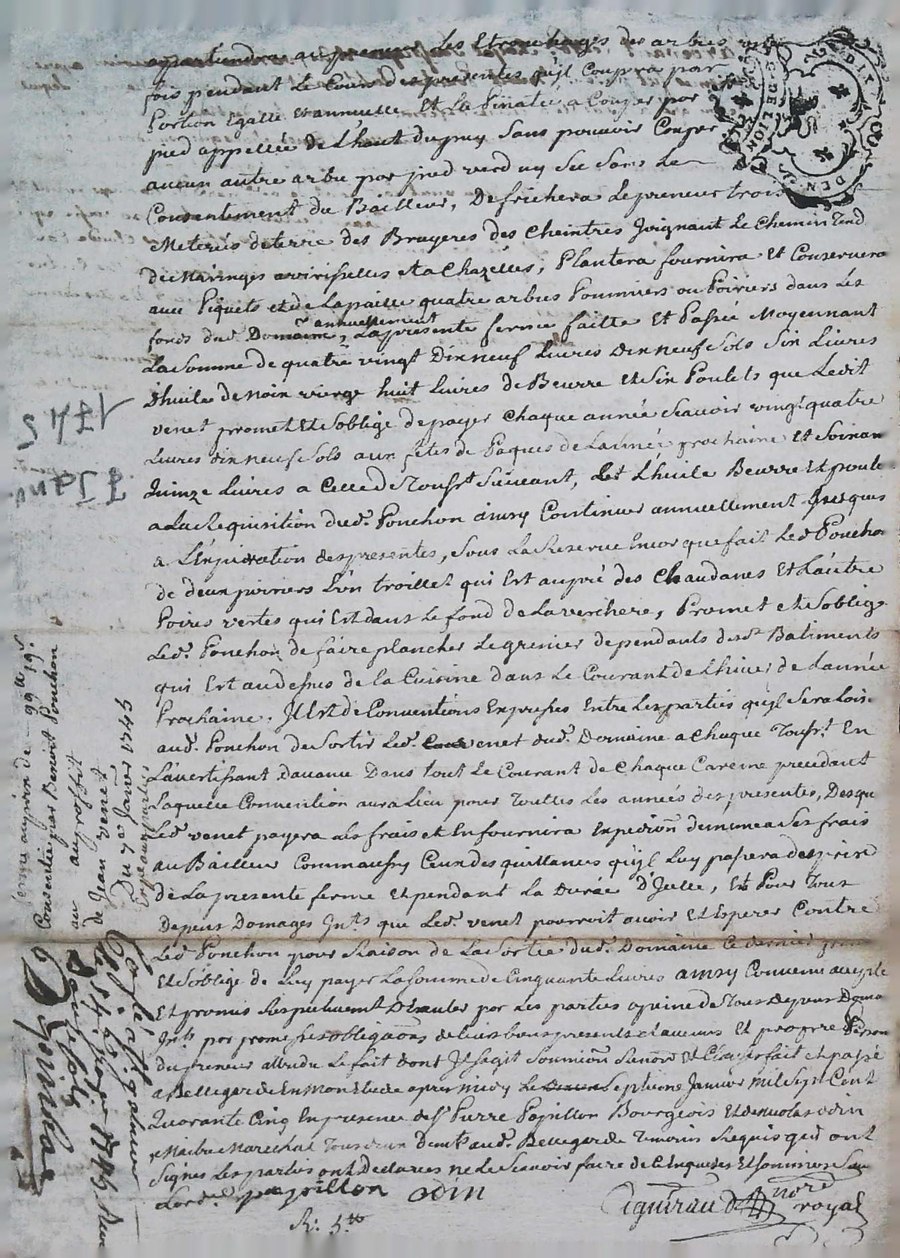 appartiendra au preneur Les Etronchages des arbres une
fois pendant Le Cour des presentes qu'jl Coupera par
Portion Egalle et annuelle Et La Pinatée a Couper par
pied appellée de L'haut du puy sans pouvoir Couper
aucun autre arbre par pied verd ny Sec Sans Le
Consentement du Bailleur, Defrichera Le preneur trois
Meterés de terre des Bruyeres des Cheintres Joignant Le Chemin Tend.
de Maringes a virisselles et a Chazelles, Plantera fournira Et Conservera
avec Piquets et de La paille quatre arbres Pommiers ou Poiriers dans Les
fonds dud. Domaine, annuellement La presente ferme faitte Et Passée Moyennant
La Somme de quatre vingt Dix neuf Livres dix neuf Sols Six Livres
d'huile de noix vierge huit Livres de Beurre et Six Poulets que Ledit
venet promet et S'oblige de payer Chaque année Scavoir vingt quatre
Livres dix neuf Sols aux fêtes de Paques de L'année prochaine et Soixan
Quinze Livres a Celle de Toussts Suivant, et L'huile Beurre Et poulets
a La Requisition dud. Ponchon ainsy Continuer annuellement Jusques
a L'Expiration des presentes, Sous La Reserve Encor que fait Led. Ponchon
de deux poiriers L'un troillet qui Est au pré des Chaudanes Et L'autre
Poires vertes qui Est dans Le fond de La verchere, Promet et S'oblige
Led. Ponchon de faire plancher Le grenier dependants desd. Batiments
qui Est au dessus de la Cuisine dans Le Courant de L'hiver de L'année
Prochaine. Jl Est de Conventions Expresses Entre Les parties qu'jl Sera Loisi.
aud. Ponchon de Sortir Led. venet dud. Domaine a Chaque Tousst. En
L'avertissant d'avance Dans tout Le Courant de Chaque Careme precedant
Laquelle Convention aura Lieu pour Touttes Les années des presentes, Desque
Led. venet payera Les frais et En fournira Expedion. de meme a Ses frais
au Bailleur Comm'aussy Ceux des quittances qu'jl Luy passera des prix
de La presente ferme Et pendant La Durée D'Jcelle, Et Pour Tous
Depens Domages Jnts. que Led. venet pourroit avoir Et Esperer Contre
Led. Ponchon pour Raison de La Sortie dud. Domaine Ce dernier promet
Et S'oblige de Luy payer La Somme de Cinquante Livres ainsy Convenu accepté
Et promis Respectivement D'Executer par Les parties a peine de Tous Depens Doma
Jnts. par promesses obligaons. de Leurs biens presents et avenirs Et propre Person
du preneur attendu Le fait dont Jl S'agit Soumissions Renons. et Clauses fait et passé
a Bellegarde En mon Etude apres midy Le Septieme Janvier Mil Sept Cent
Quarante Cinq En presence de Sr. Pierre Papillon Bourgeois Et de Nicolas odin
Maitre Marechal Tous deux Demts. aud. Bellegarde Temoins Requis qui ont
Signés Les parties ont Declarées ne Le Scavoir faire de Ce Enquises Et Sommées
papillon odin
notre royal
R: 5tt
1745
7 Janv
ferme au prix de 99tt 19s.
Consentie par Benoit Ponchon
au proffit
de Jean venet
Du 7 Janvier 1745
Douze Sols